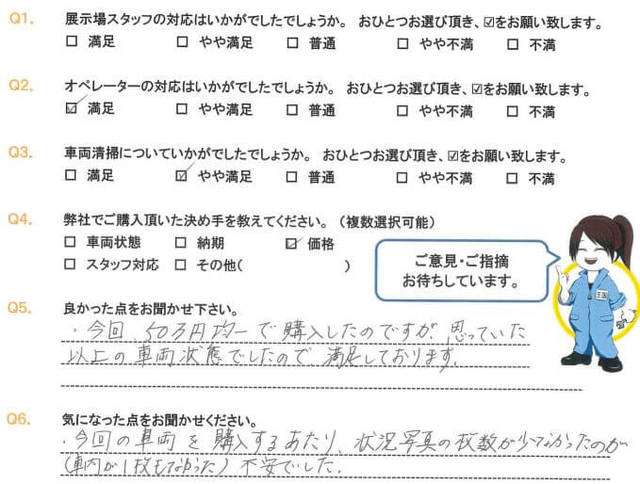 Q1. 展示場スタッフの対応はいかがでしたでしょうか。 おひとつお選び頂き、☑をお願い致します。
□ 満足 □ やや満足 □ 普通 □ やや不満 □ 不満
Q2. オペレーターの対応はいかがでしたでしょうか。 おひとつお選び頂き、☑をお願い致します。
☑ 満足 □ やや満足 □ 普通 □ やや不満 □ 不満
Q3. 車両清掃についていかがでしたでしょうか。 おひとつお選び頂き、☑をお願い致します。
□ 満足 ☑ やや満足 □ 普通 □ やや不満 □ 不満
Q4. 弊社でご購入頂いた決め手を教えてください。（複数選択可能）
□ 車両状態 □ 納期 ☑ 価格
□ スタッフ対応 □ その他( )
ご意見・ご指摘
お待ちしています。
Q5. 良かった点をお聞かせ下さい。
・今回、50万円均一で購入したのですが、思っていた
以上の車両状態でしたので満足しております。
Q6. 気になった点をお聞かせください。
・今回の車両を購入するあたり、状況写真の枚数が少なかったのが
(車内が1枚もなかった)不安でした.